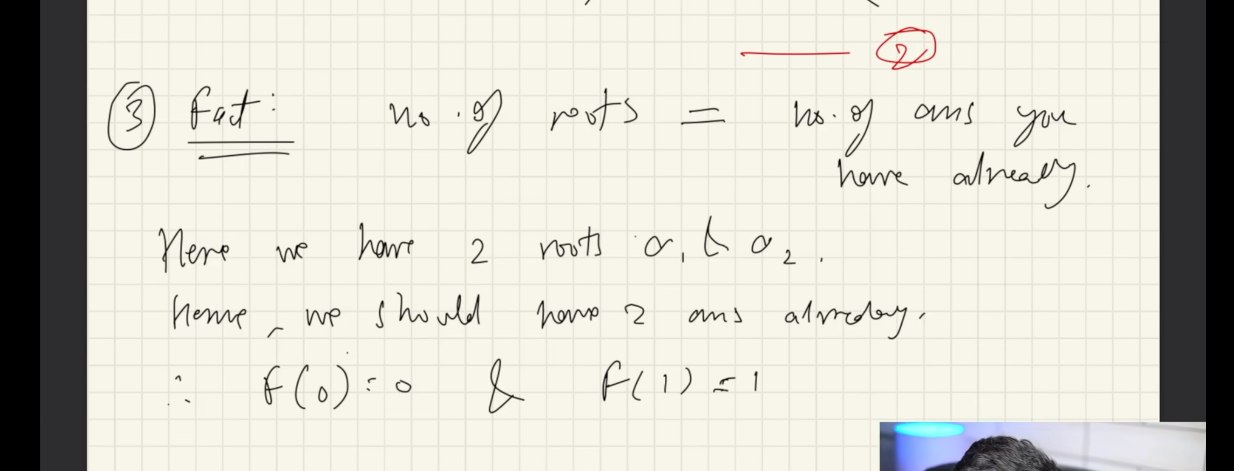 ②
③ Fact: no. of roots = no. of ans you
have already.
Here we have 2 roots α₁ & α₂.
Hence, we should have 2 ans already.
∴ F(0)=0 & F(1)=1